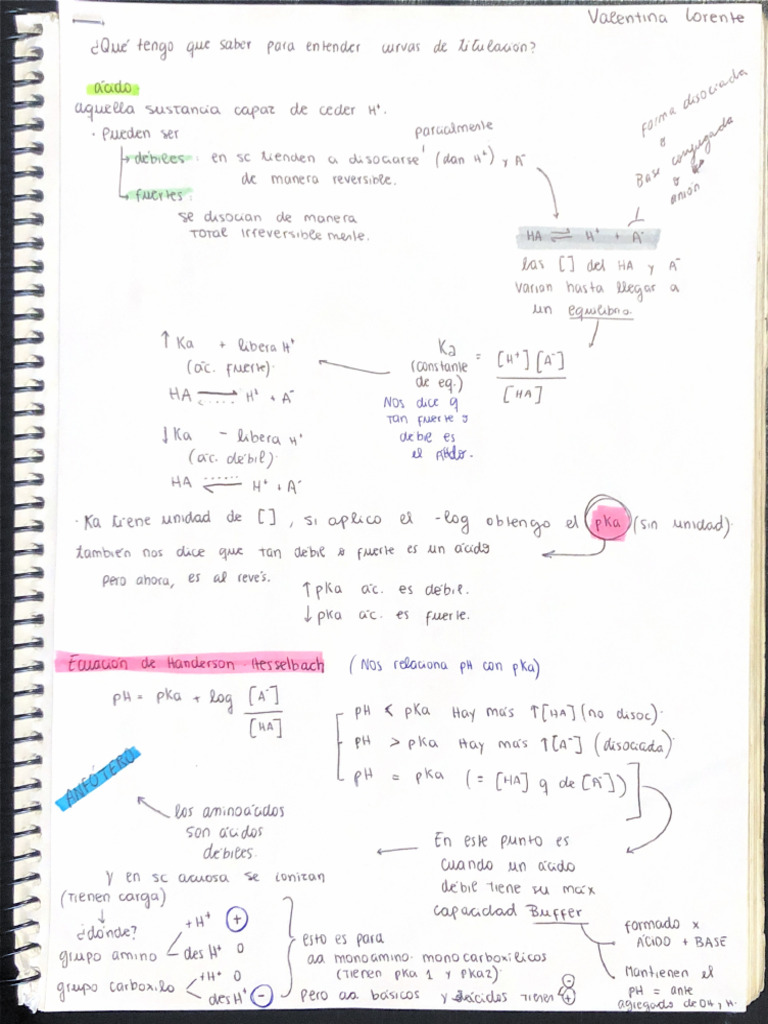 Valentina Lorente
¿Qué tengo que saber para entender curvas de titulación?
ácido
aquella sustancia capaz de ceder H⁺.
· Pueden ser
→ débiles: en sc tienden a disociarse parcialmente (dan H⁺) y A⁻
de manera reversible.
→ fuertes:
se disocian de manera
TOTAL irreversiblemente.
forma disociada
o
Base conjugada
o
anión
HA ⇌ H⁺ + A⁻
las [] del HA y A⁻
varian hasta llegar a
un equilibrio.
↑ Ka + libera H⁺
(ác. fuerte).
HA ⇌ H⁺ + A⁻
↓ Ka - libera H⁺
(ác. débil).
HA ⇌ H⁺ + A⁻
Ka = [H⁺][A⁻]
(constante
de eq.)
[HA]
Nos dice q
tan fuerte o
debil es
el Ácido.
· Ka tiene unidad de [], si aplico el -log obtengo el pKa (sin unidad).
también nos dice que tan debil o fuerte es un ácido
Pero ahora, es al revés.
↑ pKa ác. es débil.
↓ pKa ác. es fuerte.
Ecuación de Handerson-Hesselbach (Nos relaciona pH con pKa)
pH = pKa + log [A⁻]
[HA]
pH < pKa Hay más ↑[HA] (no disoc).
pH > pKa Hay más ↑[A⁻] (disociada).
pH = pKa (= [HA] q de [A⁻])
ANFÓTERO
los aminoácidos
son ácidos
débiles.
En este punto es
cuando un ácido
débil tiene su máx
capacidad Buffer
formado x
ÁCIDO + BASE
Mantienen el
pH = ante
agregado de OH, H.
Y en sc acuosa se ionizan
(Tienen carga)
↓
¿dónde?
grupo amino
+H⁺ +
des H⁺ 0
grupo carboxilo
+H⁺ 0
des H⁺ -
esto es para
aa monoamino monocarboxílicos
(tienen pKa 1 y pKa2).
Pero aa básicos y ácidos tienen - +